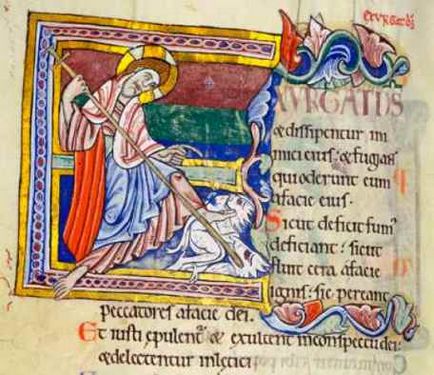 Exurgat ds
EXURGAT DS
& dissipentur ini
mici eius: & fugiant
qui oderunt eum
afacie eius.
Sicut deficit fum'
deficiant: sicut
fluit cera afacie
ignis: sic pereant
peccatores afacie dei.
Et iusti epulent' & exultent inconspectu dei:
& delectentur inleticia